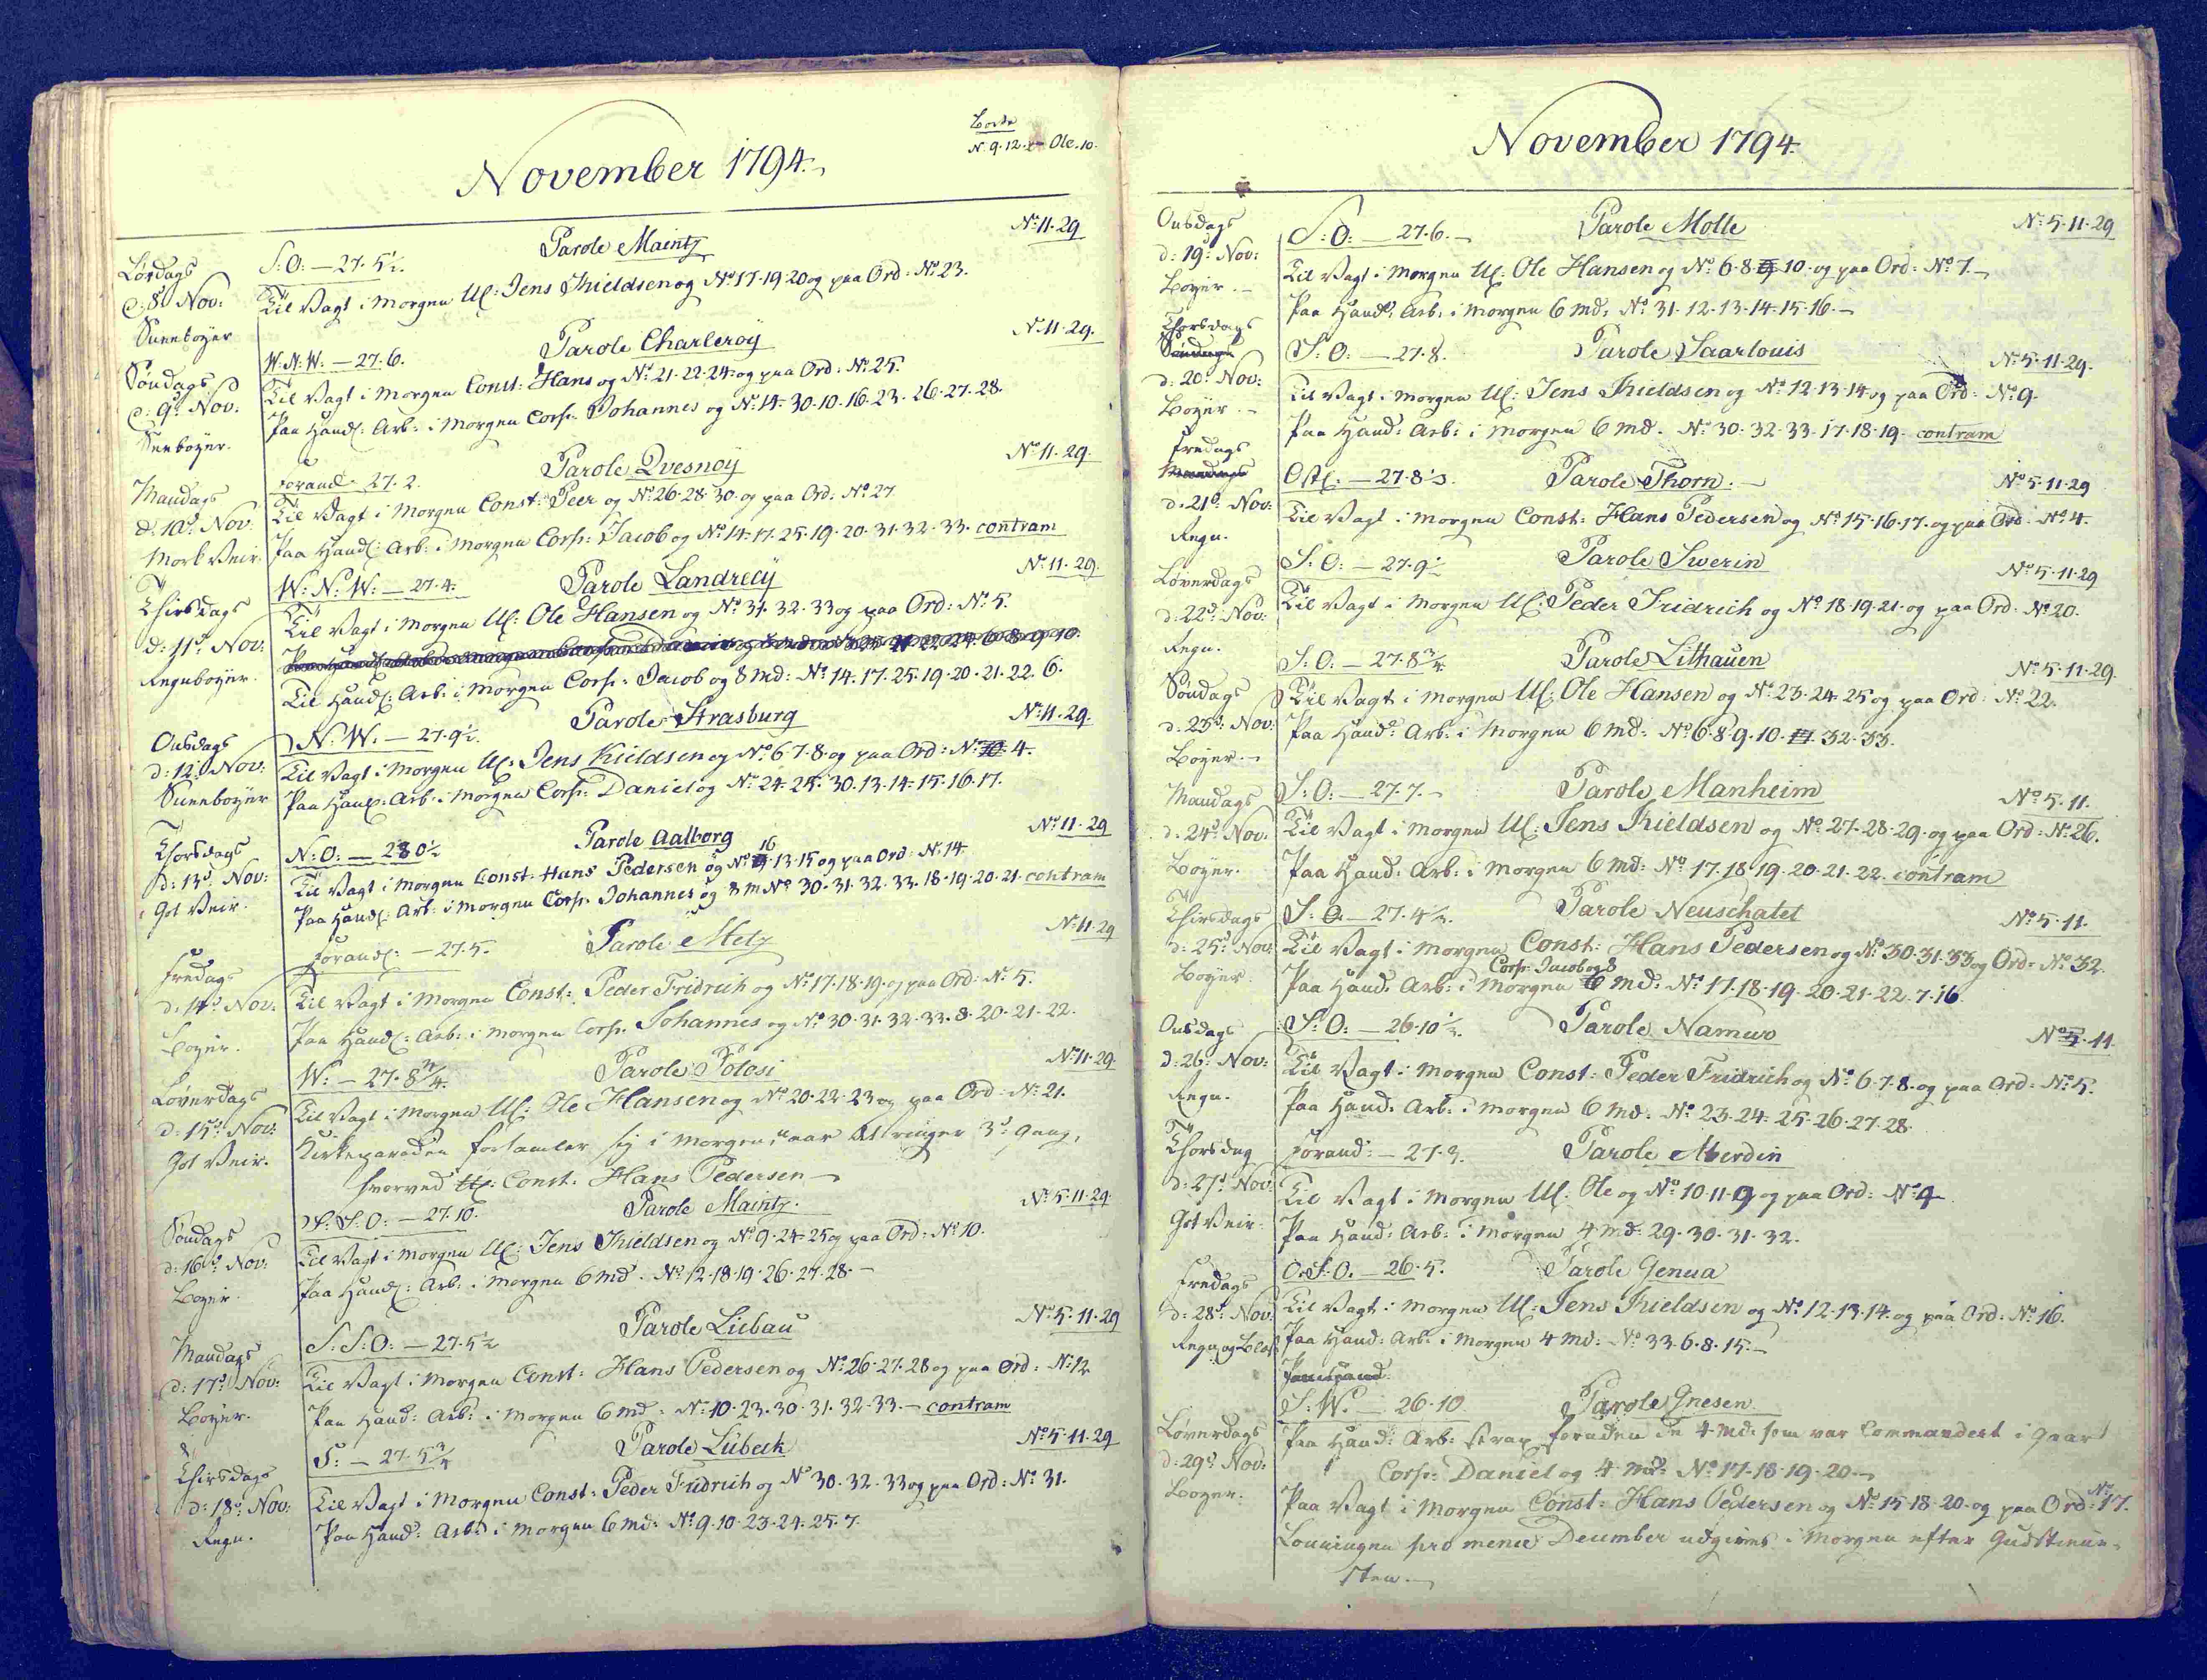 November 1794.
N. 9. 12. Ole. 10.
Løvdags
d: 8d Nov:
S: O: — 27. 5½. Parole Maintz No 11. 29
Til Vagt i Morgen Uf: Jens Kieldsen og No 17. 19. 20 og paa Ord: No 23.
Søndags
d: 9d Nov:
W. N. W. — 27. 6. Parole Charleroy No 11. 29.
Til Vagt i Morgen Const: Hans og No 21. 22. 24. og paa Ord: No 25.
Paa Hand: Arb: i Morgen Corp: Johannes og No 14. 30. 10. 16. 23. 26. 27. 28.
Mandags
d: 10d Nov.
Mork Veir.
forand 27. 2. Parole Qvesnoy No 11. 29.
Til Vagt i Morgen Const: Peer og No 26. 28. 30. og paa Ord: No 27
Paa Hand: Arb: i Morgen Corp: Jacob og No 14. 17. 25. 19. 20. 31. 32. 33. contram
Thirsdags
d: 11d Nov:
W: N: W: — 27. 4. Parole Landrecy No 11. 29.
Til Vagt i Morgen Uf: Ole Hansen og No 31. 32. 33 og paa Ord: No 5.
Til Hand: Arb: i Morgen Corp: Jacob og 8 Md: No 14. 17. 25. 19. 20. 21. 22. 6.
Onsdags
d: 12d Nov:
N: W: — 27. 9½. Parole Strasburg No 11. 29.
Til Vagt i Morgen Uf: Jens Kieldsen og No 6. 7. 8. og paa Ord: No 4.
Paa Hand: Arb: i Morgen Corp: Daniel og No 24. 25. 30. 13. 14. 15. 16. 17.
Thorsdags
d: 13d Nov:
Got Veir.
N: O: — 28 0½ Parole Aalborg No 11. 29
Til Vagt i Morgen Const: Hans Pedersen og No 16 13. 15 og paa Ord: No 14.
Paa Hand: Arb: i Morgen Corp: Johannes og 8 M No 30. 31. 32. 33. 18. 19. 20. 21. contram
Fredags
d: 14d Nov:
forand: — 27. 5. Parole Metz No 11. 29
Til Vagt i Morgen Const: Peder Fridrich og No 17. 18. 19. og paa Ord: No 5.
Paa Hand: Arb: i Morgen Corp: Johannes og No 30. 31. 32. 33. 8. 20. 21. 22.
Løverdags
d: 15d Nov:
Got Veir.
W: — 27. 8¾. Parole Potosi No 11. 29
Til Vagt i Morgen Uf: Ole Hansen og No 20. 22. 23 og paa Ord: No 21.
Kirkeparaden forsamler sig i Morgen, naar det ringer 3d Gang,
hvorved Const: Hans Pedersen
Søndags
d: 16d Nov:
S. S. O: — 27. 10. Parole Maintz. No 5. 11. 29
Til Vagt i Morgen Uf: Jens Kieldsen og No 9. 24. 25 og paa Ord: No 10.
Paa Hand: Arb: i Morgen 6 Md. No 12. 18. 19. 26. 27. 28. —
Mandags
d: 17d Nov:
S: S: O: — 27. 5½ Parole Liebau No 5. 11. 29
Til Vagt i Morgen Const: Hans Pedersen og No 26. 27. 28 og paa Ord: No 12
Paa Hand: Arb: i Morgen 6 Md: No 10. 23. 30. 31. 32. 33. — contram
Thirsdags
d: 18d Nov:
Regn.
S: — 27. 5¾ Parole Lübeck No 5. 11. 29
Til Vagt i Morgen Const: Peder Fridrich og No 30. 32. 33 og paa Ord: No 31.
Paa Hand: Arb: i Morgen 6 Md: No 9. 10. 23. 24. 25. 7.
November 1794.
Onsdags
d: 19d Nov:
S: O: — 27. 6. — Parole Molle No 5. 11. 29
Til Vagt i Morgen Uf: Ole Hansen og No 6. 8. 10. og paa Ord: No 7. —
Paa Hand: Arb: i Morgen 6 Md: No 31. 12. 13. 14. 15. 16. —
Thorsdags
d: 20d Nov:
S: O: — 27. 8. Parole Saarlouis No 5. 11. 29.
Til Vagt i Morgen Uf: Jens Kieldsen og No 12. 13. 14. og paa Ord: No 9.
Paa Hand: Arb: i Morgen 6 Md. No 30. 32. 33. 17. 18. 19. contram
Fredags
d. 21d Nov:
Regn.
Ost: — 27. 8⅓. Parole Thorn. — No 5. 11. 29
Til Vagt i Morgen Const: Hans Pedersen og No 15. 16. 17. og paa Ord: No 4.
Løverdags
d: 22d Nov:
Regn.
S: O: — 27. 9½ Parole Swerin No 5. 11. 29
Til Vagt i Morgen Uf: Peder Fridrich og No 18. 19. 21. og paa Ord: No 20.
Søndags
d: 23d. Nov:
S: O: — 27. 8¾ Parole Lithauen No 5. 11. 29.
Til Vagt i Morgen Uf: Ole Hansen og No 23. 24. 25 og paa Ord: No 22.
Paa Hand: Arb: i Morgen 6 Md: No 6. 8. 9. 10. 32. 33.
Mandags
d. 24d Nov:
S: O: — 27. 7. — Parole Manheim No 5. 11.
Til Vagt i Morgen Uf: Jens Kieldsen og No 27. 28. 29. og paa Ord: No 26.
Paa Hand: Arb: i Morgen 6 Md: No 17. 18. 19. 20. 21. 22. contram
Thirsdags
d: 25d Nov:
S: O. — 27. 4½. Parole Neuschatel No 5. 11.
Til Vagt i Morgen Const: Hans Pedersen og No 30. 31. 33 og Ord: No 32.
Corp: Jacob og 8
Paa Hand: Arb: i Morgen Md: No 17. 18. 19. 20. 21. 22. 7. 16.
Onsdags
d: 26d Nov:
Regn.
S: O: — 26. 10½. Parole Namur No 5. 11.
Til Vagt i Morgen Const: Peder Fridrich og No 6. 7. 8. og paa Ord: No 5.
Paa Hand: Arb: i Morgen 6 Md. No 23. 24. 25. 26. 27. 28.
Thorsdag
d: 27d Nov:
Got Veir.
forand: — 27. 3. Parole
Til Vagt i Morgen Uf: Ole og No 10. 11. 9 og paa Ord: No 4
Paa Hand: Arb: i Morgen 4 Md: 29. 30. 31. 32.
Fredags
d: 28d Nov:
Regn og Blæst
O. S. O. — 26. 5. Parole Genua
Til Vagt i Morgen Uf: Jens Kieldsen og No 12. 13. 14. og paa Ord: No 16.
Paa Hand: Arb: i Morgen 4 Md: No 33. 6. 8. 15. —
Løverdags
d: 29d Nov:
S: W. — 26. 10 Parole Gnesen
Paa Hand: Arb: strax foruden de 4 Md. som var Commandert i Gaar
Corp: Daniel og 4 Md: No 17. 18. 19. 20. —
Paa Vagt i Morgen Const: Hans Pedersen og No 15. 18. 20. og paa Ord: No 17.
Lønningen pro mense December udgives i Morgen efter Gudstiene-
sten. —